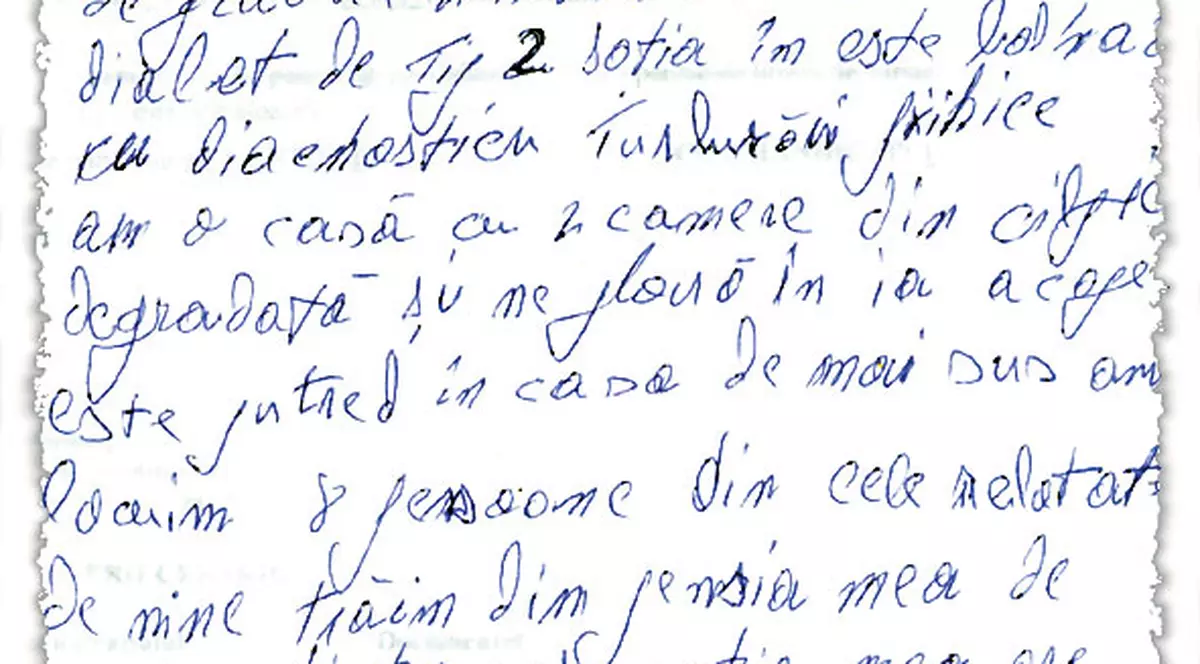 diabet de Tip 2 soția îm este bolnavă
cu diacnosticu Tulburări psihice
am o casă cu 2 camere din
degradată și ne plouă în ia
este putred în casa de mai sus am
locuim 8 persoane din cele relatate
de mine trăim din pensia mea de